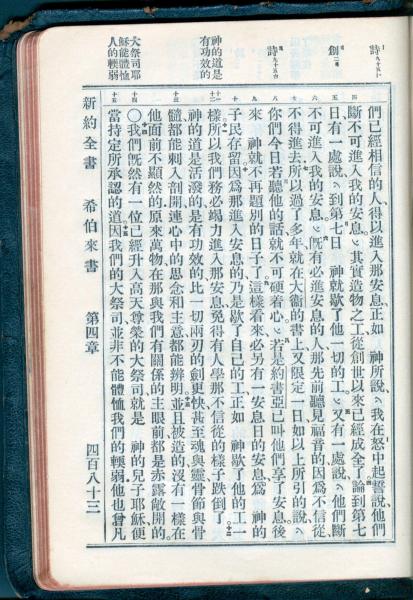 詩九十五十一
創二二
詩九十五七八
神的道是
有功效的
大祭司耶
穌能體恤
人的輭弱
四
五
六
七
八
九
十
十一
十二
十三
十四
十五
們已經相信的人、得以進入那安息、正如　神所說、我在怒中起誓說、他們
斷不可進入我的安息。其實造物之工、從創世以來已經成全了。論到第七
日有一處說、到第七日　神就歇了他一切的工。又有一處說、他們斷
不可進入我的安息。旣有必進安息的人、那先前聽見福音的、因不信從
不得進去。所以過了多年、就在大衞的書上、又限定一日、如以上所引的說、
你們今日若聽他的話、就不可硬着心。若是約書亞已叫他們享了安息、後
來　神就不再題別的日子了。這樣看來、必另有一安息日的安息、爲　神的
子民存留。因爲那進入安息的、乃是歇了自己的工、正如　神歇了他的工一
樣。所以我們務必竭力進入那安息、免得有人學那不信從的樣子跌倒了。
神的道是活潑的、是有功效的、比一切兩刃的劍更快、甚至魂與靈、骨節與骨
髓、都能刺入剖開、連心中的思念和主意、都能辨明。並且被造的、沒有一樣在
他面前不顯然的、原來萬物、在那與我們有關係的主眼前、都是赤露敞開的。
〇我們旣然有一位已經升入高天尊榮的大祭司、就是　神的兒子耶穌、便
當持定所承認的道。因我們的大祭司、並非不能體恤我們的輭弱、他也曾凡
新約全書　希伯來書　第四章　四百八十三